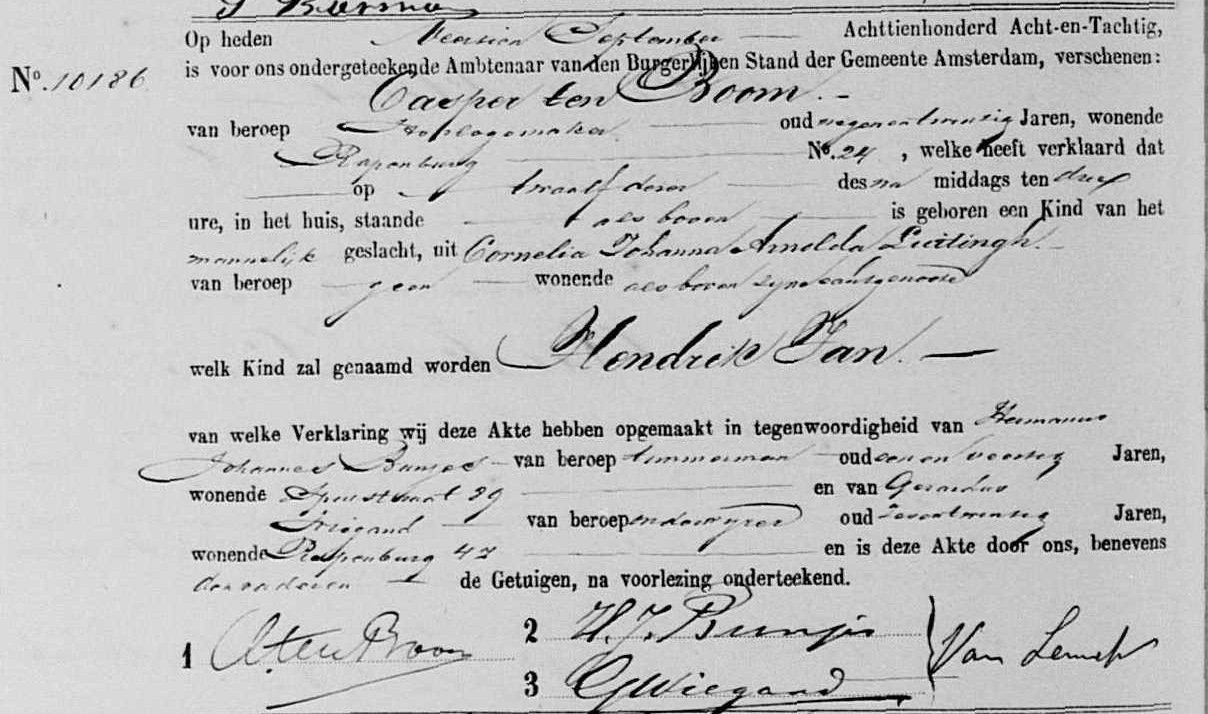 Op heden Veertien September Achttienhonderd Acht-en-Tachtig,
No. 10186 is voor ons ondergeteekende Ambtenaar van den Burgerlijken Stand der Gemeente Amsterdam, verschenen:
Casper ten Boom.
van beroep Horlogemaker oud negenentwintig Jaren, wonende
Rapenburg No. 24, welke heeft verklaard dat
op twaalf dezer des na middags ten drie
ure, in het huis, staande als boven is geboren een Kind van het
mannelijk geslacht, uit Cornelia Johanna Arnolda Luitingh.
van beroep geen wonende als boven zijne echtgenoote
welk Kind zal genaamd worden Hendrik Jan.
van welke Verklaring wij deze Akte hebben opgemaakt in tegenwoordigheid van Hermanus
Johannes Bunjes van beroep timmerman oud een en veertig Jaren,
wonende 39 en van Gerardus
Wiegand van beroep onderwijzer oud zevenentwintig Jaren,
wonende Rapenburg 47 en is deze Akte door ons, benevens
den vader en de Getuigen, na voorlezing onderteekend.
1 C ten Boom 2 H. J. Bunjes Van Lennep
3 G Wiegand